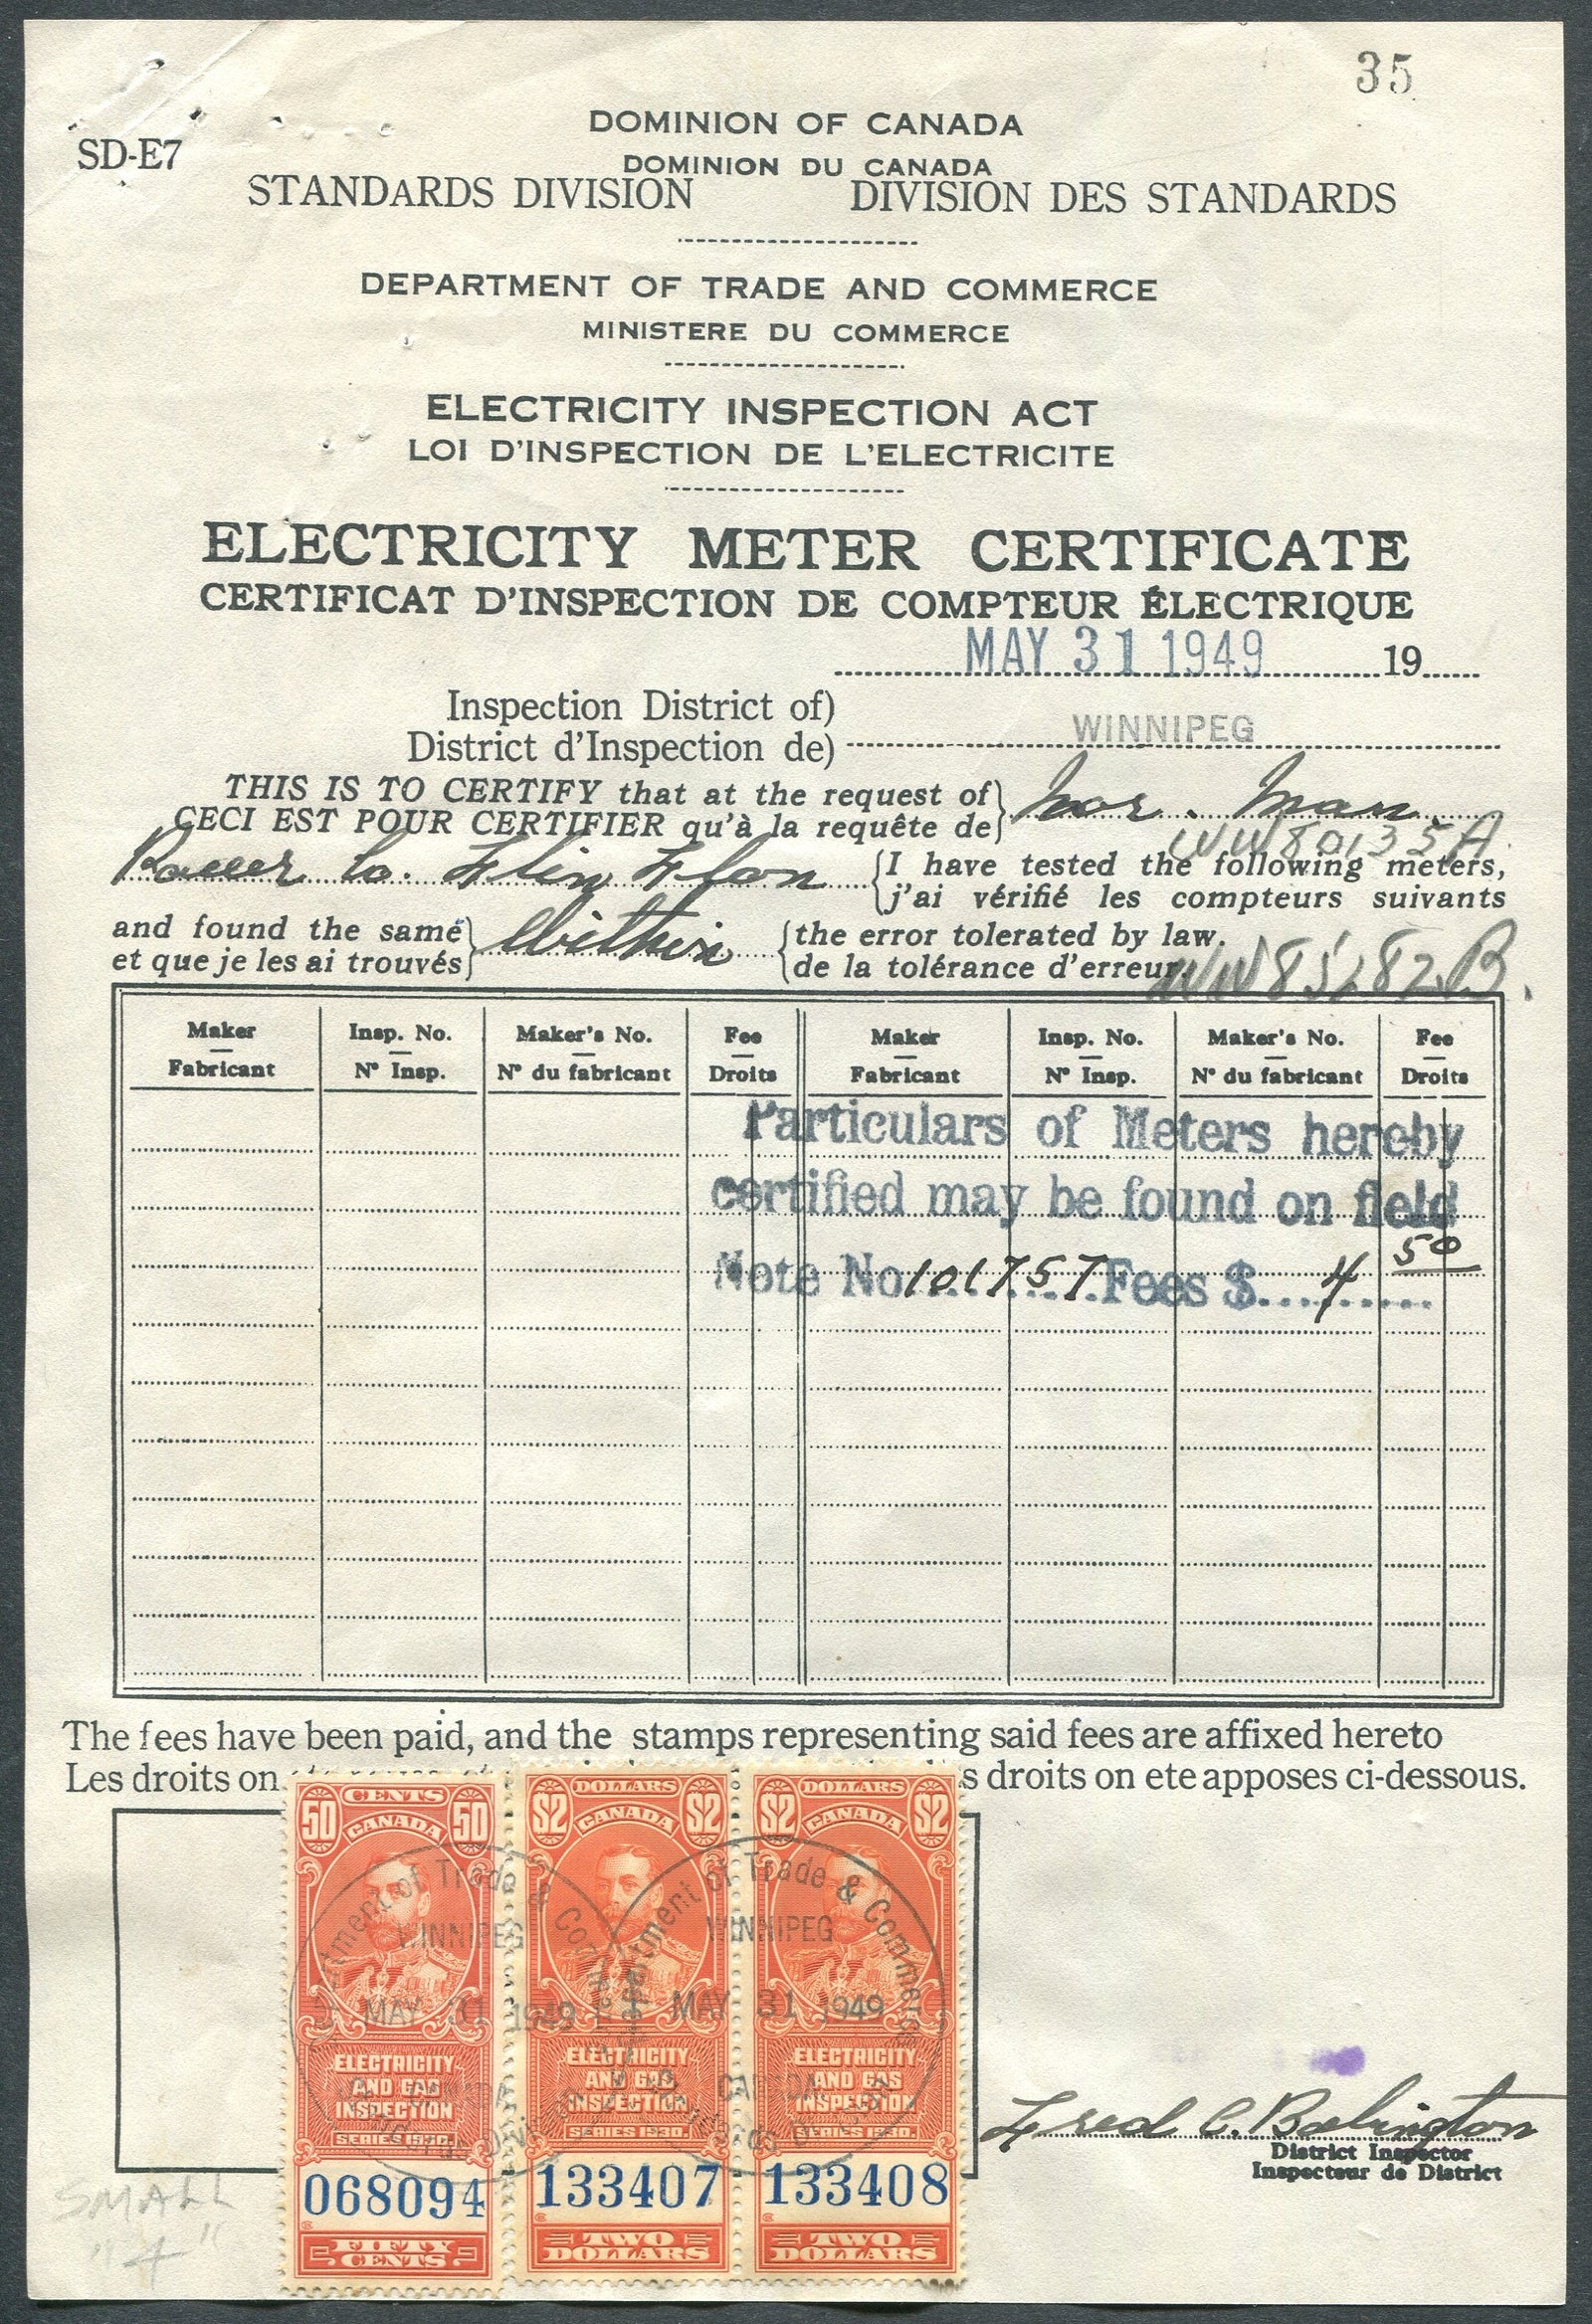 35
DOMINION OF CANADA
DOMINION DU CANADA
SD-E7
STANDARDS DIVISION DIVISION DES STANDARDS
DEPARTMENT OF TRADE AND COMMERCE
MINISTERE DU COMMERCE
ELECTRICITY INSPECTION ACT
LOI D'INSPECTION DE L'ELECTRICITE
ELECTRICITY METER CERTIFICATE
CERTIFICAT D'INSPECTION DE COMPTEUR ÉLECTRIQUE
MAY 31 1949 19
Inspection District of)
District d'Inspection de) WINNIPEG
THIS IS TO CERTIFY that at the request of} Nor. Man
CECI EST POUR CERTIFIER qu'à la requête de}
WW80135A
Power Co. Flin Flon {I have tested the following meters,
{j'ai vérifié les compteurs suivants
and found the same} Within {the error tolerated by law.
et que je les ai trouvés} {de la tolérance d'erreur.
WW85282B
Maker Insp. No. Maker's No. Fee Maker Insp. No. Maker's No. Fee
Fabricant N° Insp. N° du fabricant Droits Fabricant N° Insp. N° du fabricant Droits
Particulars of Meters hereby
certified may be found on field
Note No 101757 Fees $ 4 50
The fees have been paid, and the stamps representing said fees are affixed hereto
Les droits on s droits on ete apposes ci-dessous.
CENTS DOLLARS DOLLARS
50 50 $2 $2 $2 $2
CANADA CANADA CANADA
Department of Trade & Commerce
WINNIPEG WINNIPEG
MAY 31 1949 MAY 31 1949
CANADA CANADA
Standards Division
ELECTRICITY AND GAS INSPECTION ELECTRICITY AND GAS INSPECTION ELECTRICITY AND GAS INSPECTION
SERIES 1930. SERIES 1930. SERIES 1930.
068094 133407 133408
FIFTY CENTS TWO DOLLARS TWO DOLLARS
Fred C. Babington
District Inspector
Inspecteur de District
SMALL
"4"